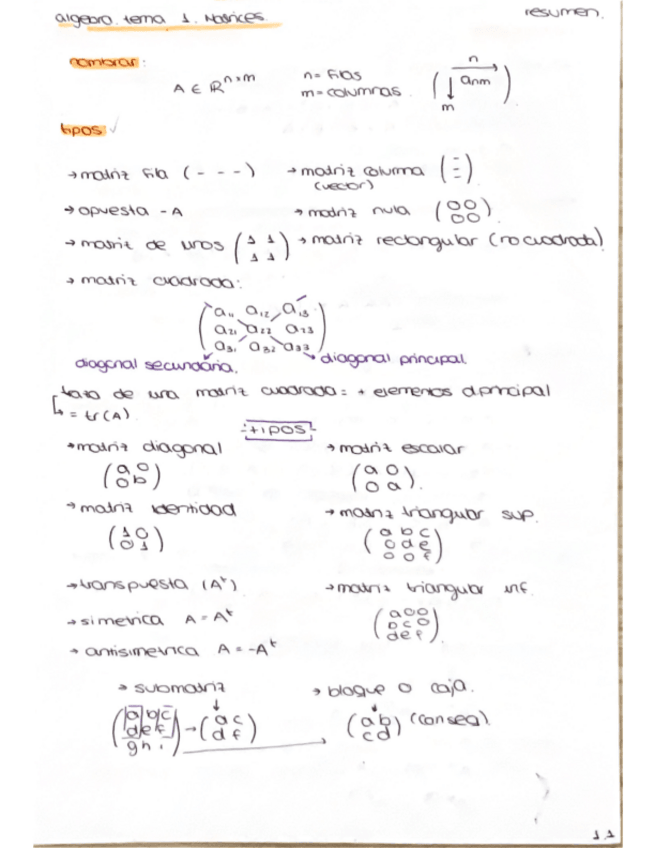 algebra. tema 1. Matrices. resumen.
nombrar:
A ∈ ℝ^n×m n= filas ( n → a_nm ↓ m )
m=columnas
tipos ✓
→matriz fila (- - -) →matriz columna (- - -)
(vector)
→opuesta -A →matriz nula (00 00).
→matriz de unos (1 1 1 1) →matriz rectangular (no cuadrada)
→ matriz cuadrada:
(a₁₁ a₁₂ a₁₃
a₂₁ a₂₂ a₂₃
a₃₁ a₃₂ a₃₃)
diagonal secundaria. diagonal principal.
traza de una matriz cuadrada = + elementos d.principal
↳ = tr(A).
+ipos
→matriz diagonal →matriz escalar
(a 0 0 b) (a 0 0 a).
→matriz identidad →matriz triangular sup.
(1 0 0 1) (a b c 0 d e 0 0 f)
→transpuesta (Aᵗ) →matriz triangular inf.
→simetrica A = Aᵗ (a 0 0 b c 0 d e f).
→ antisimetrica A = -Aᵗ
→ submatriz → bloque o caja.
(a b c d e f g h i) → (a c d f) → (a b c d) (consec).
1.1